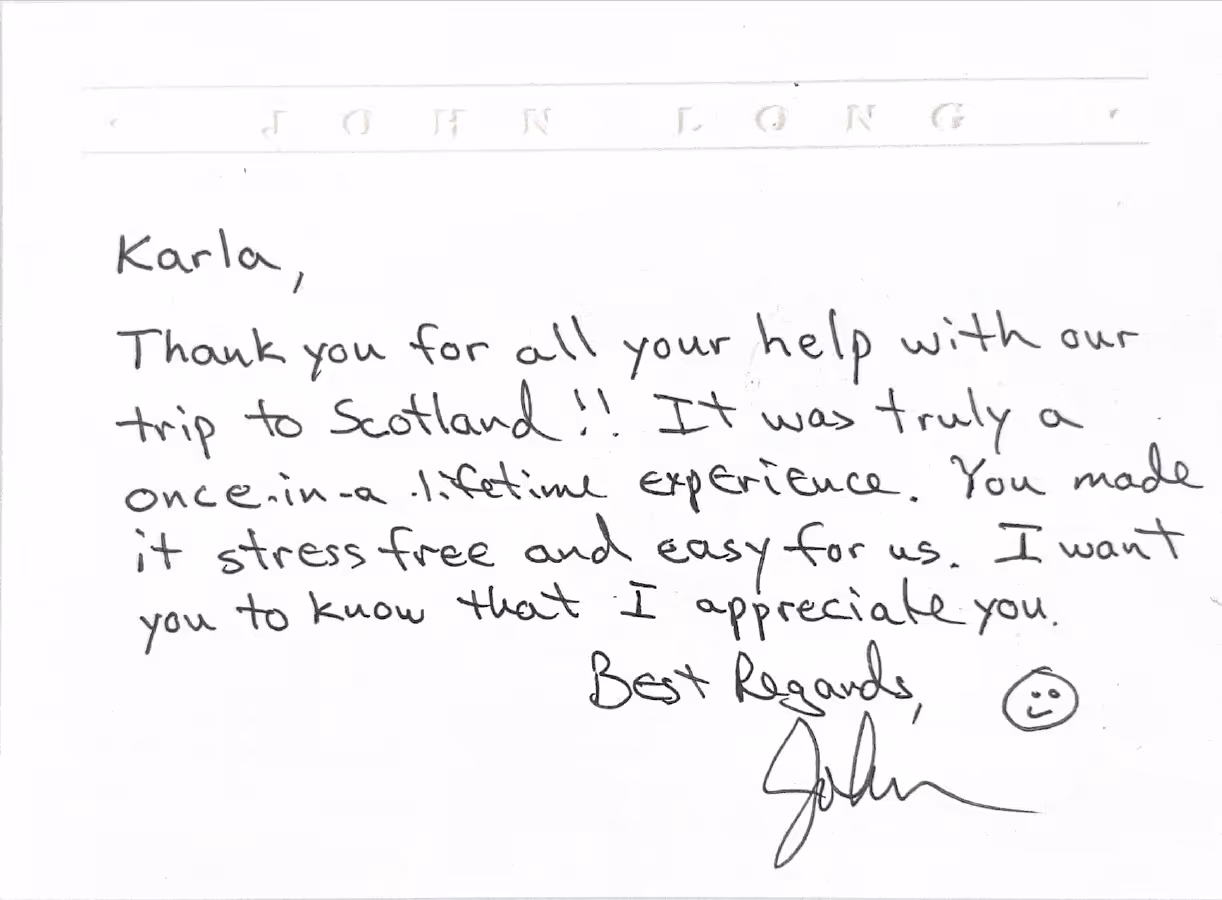 JOHN LONG
Karla,
Thank you for all your help with our
trip to Scotland!! It was truly a
once-in-a-lifetime experience. You made
it stress free and easy for us. I want
you to know that I appreciate you.
Best Regards,
John